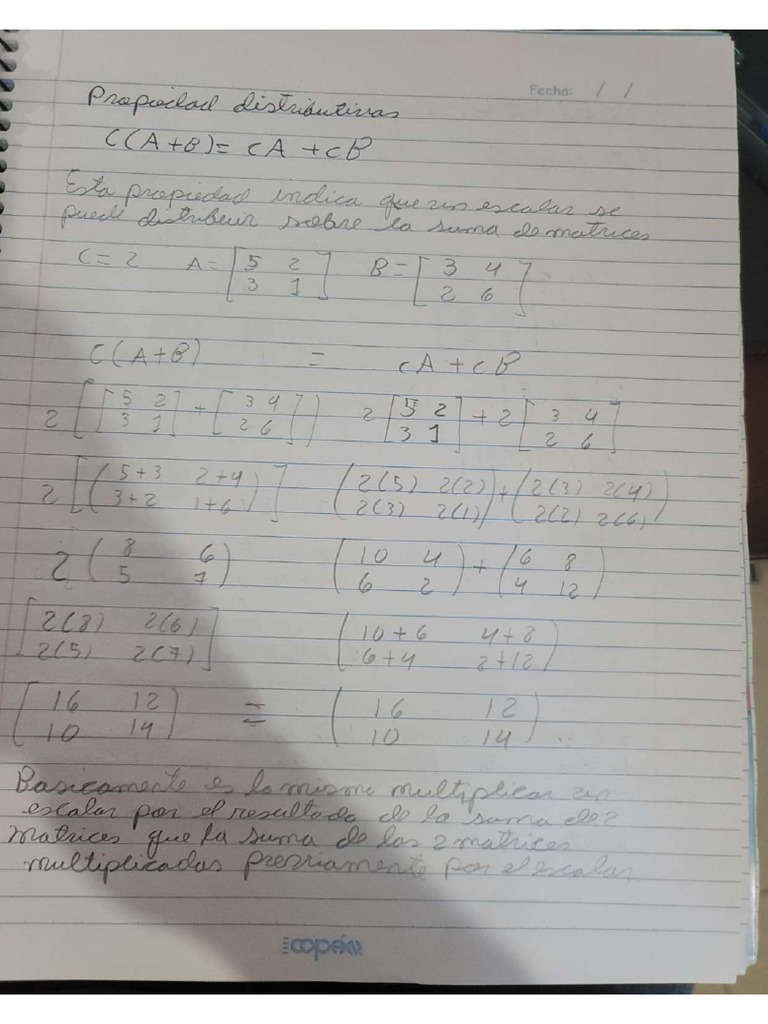 Fecha: / /
Propiedad distributivas
C(A+B)= cA + cB
Esta propiedad indica que un escalar se
puede distribuir sobre la suma de matrices
C = 2 A= [5 2 B = [3 4
3 1] 2 6]
C(A+B) = cA + cB
2 [[5 2 + [3 4 2 [5 2 + 2 [3 4
3 1] 2 6]) 3 1] 2 6]
2 [(5+3 2+4 (2(5) 2(2) + (2(3) 2(4)
3+2 1+6)] 2(3) 2(1)) 2(2) 2(6))
2 (8 6 (10 4 + (6 8
5 7) 6 2) 4 12)
[2(8) 2(6) (10+6 4+8
2(5) 2(7)] 6+4 2+12)
(16 12 = (16 12
10 14) 10 14)
Basicamente es lo mismo multiplicar un
escalar por el resultado de la suma de 2
matrices que la suma de las 2 matrices
multiplicadas previamente por el escalar
copán